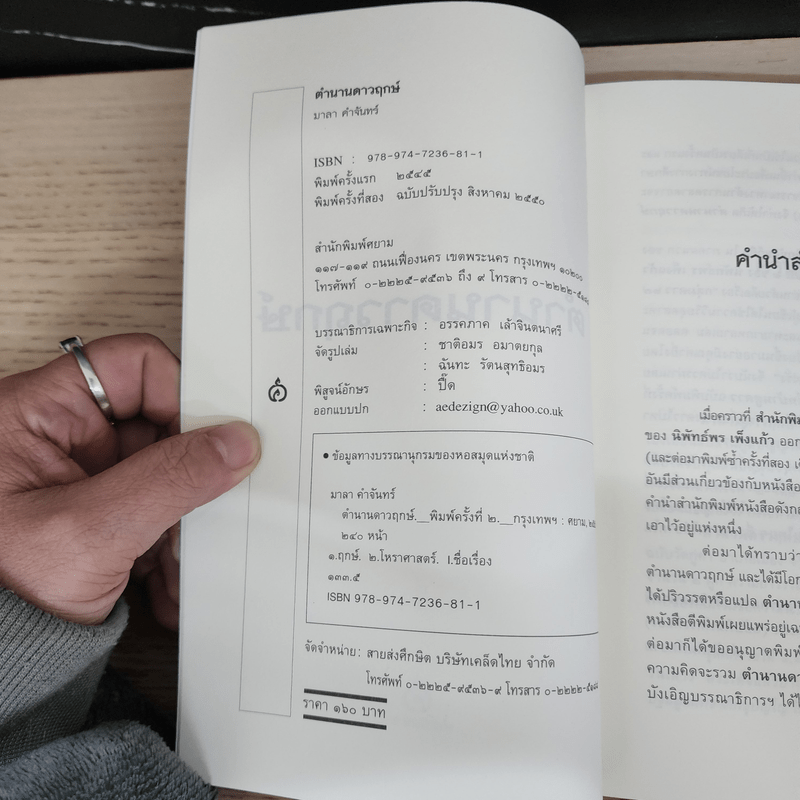 ตำนานดาวฤกษ์
มาลา คำจันทร์
ISBN : 978-974-7236-81-1
พิมพ์ครั้งแรก ๒๕๔๕
พิมพ์ครั้งที่สอง ฉบับปรับปรุง สิงหาคม ๒๕๕๐
สำนักพิมพ์ศยาม
๑๑๗-๑๑๙ ถนนเฟื่องนคร เขตพระนคร กรุงเทพฯ ๑๐๒๐๐
โทรศัพท์ ๐-๒๒๒๕-๙๕๓๖ ถึง ๙ โทรสาร
บรรณาธิการเฉพาะกิจ : อรรคภาค เล้าจินตนาศรี
จัดรูปเล่ม : ชาติอมร อมาตยกุล
: ฉันทะ รัตนสุทธิอมร
พิสูจน์อักษร : ปี๊ด
ออกแบบปก : aedezign@yahoo.co.uk
• ข้อมูลทางบรรณานุกรมของหอสมุดแห่งชาติ
มาลา คำจันทร์
ตำนานดาวฤกษ์.__พิมพ์ครั้งที่ ๒.__กรุงเทพฯ : ศยาม,
๒๔๐ หน้า
๑.ฤกษ์. ๒.โหราศาสตร์. I.ชื่อเรื่อง
๑๓๓.๕
ISBN 978-974-7236-81-1
จัดจำหน่าย: สายส่งศึกษิต บริษัทเคล็ดไทย จำกัด
โทรศัพท์ ๐-๒๒๒๕-๙๕๓๖-๙ โทรสาร
ราคา ๑๖๐ บาท
คำนำ
เมื่อคราวที่ สำนักพิม
ของ นิพัทธ์พร เพ็งแก้ว ออก
(และต่อมาพิมพ์ซ้ำครั้งที่สอง
อันมีส่วนเกี่ยวข้องกับหนังสือ
คำนำสำนักพิมพ์หนังสือดังกล
เอาไว้อยู่แห่งหนึ่ง
ต่อมาได้ทราบว่า
ตำนานดาวฤกษ์ และได้มีโอก
ได้ปริวรรตหรือแปล ตำนาน
หนังสือตีพิมพ์เผยแพร่อยู่เฉ
ต่อมาก็ได้ขออนุญาตพิมพ์
ความคิดจะรวม ตำนานดา
บังเอิญบรรณาธิการฯ ได้ไ